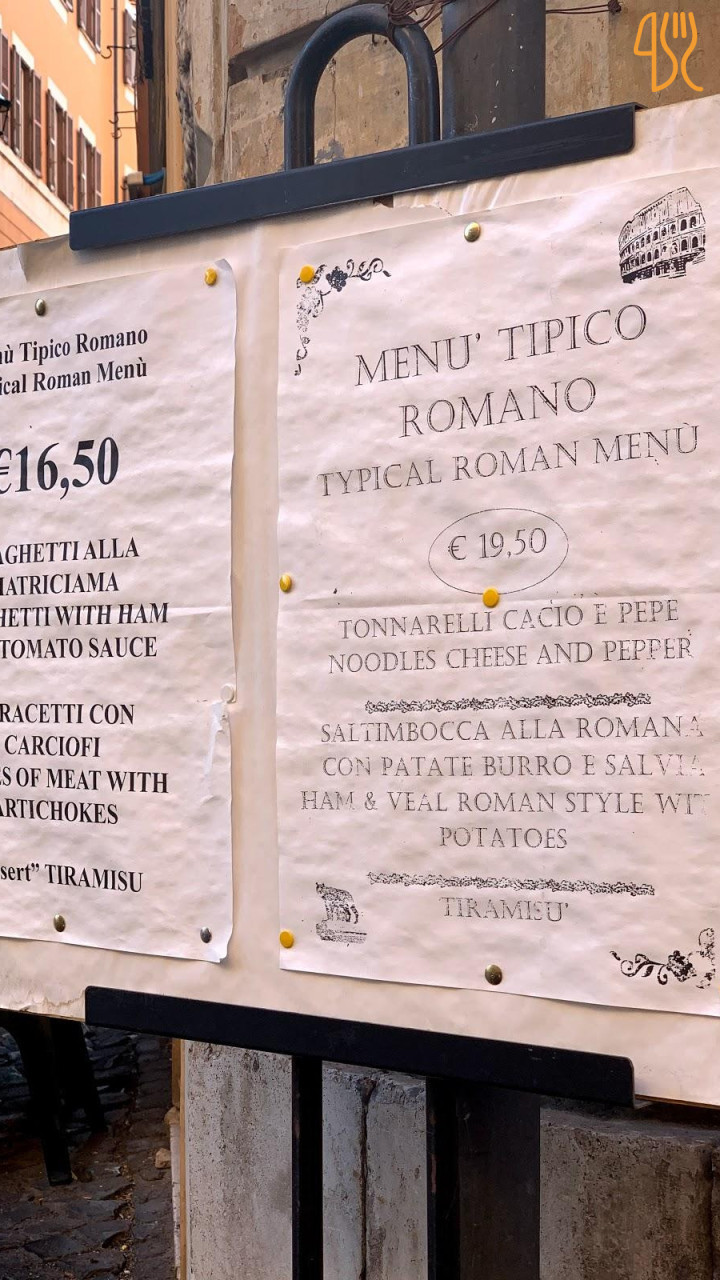 Tipico Romano
Roman Menù
€16,50
ALLA
WITH HAM
TOMATO SAUCE
CON
CARCIOFI
OF MEAT WITH
ARTICHOKES
TIRAMISU
MENU' TIPICO
ROMANO
TYPICAL ROMAN MENÙ
€ 19,50
TONNARELLI CACIO E PEPE
NOODLES CHEESE AND PEPPER
SALTIMBOCCA ALLA ROMANA
CON PATATE BURRO E SALVIA
HAM & VEAL ROMAN STYLE WIT
POTATOES
TIRAMISU'